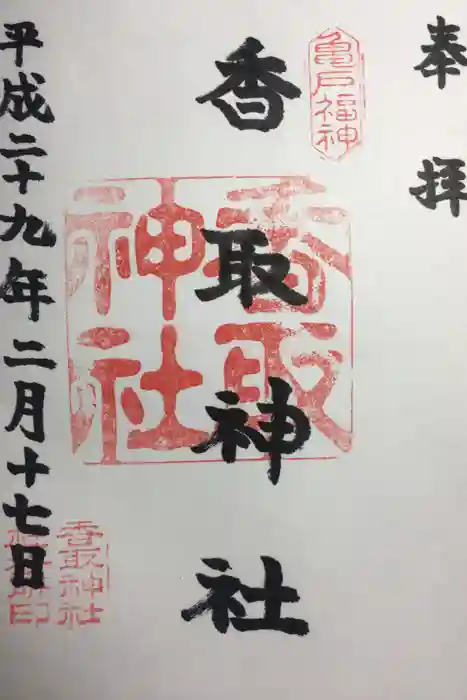 奉拝
亀戸福神
香取神社
香取神社
平成二十九年二月十七日
香取神社